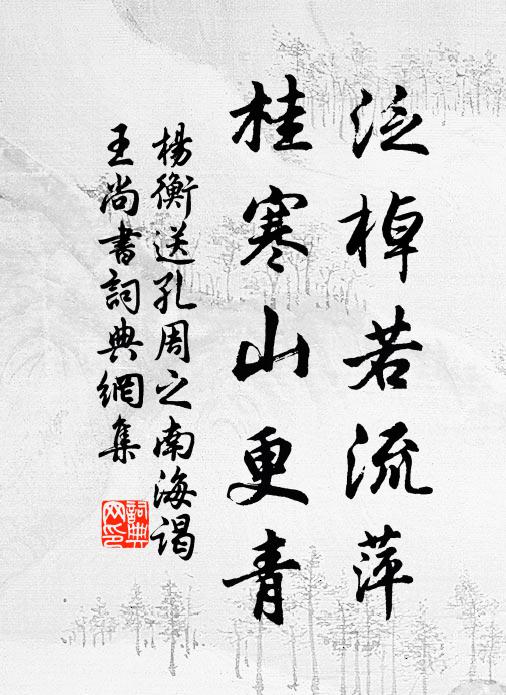 泛棹若流萍
桂寒山更青
楊衡送孔周之南海謁
王尚書詞典網集
詞典
网印